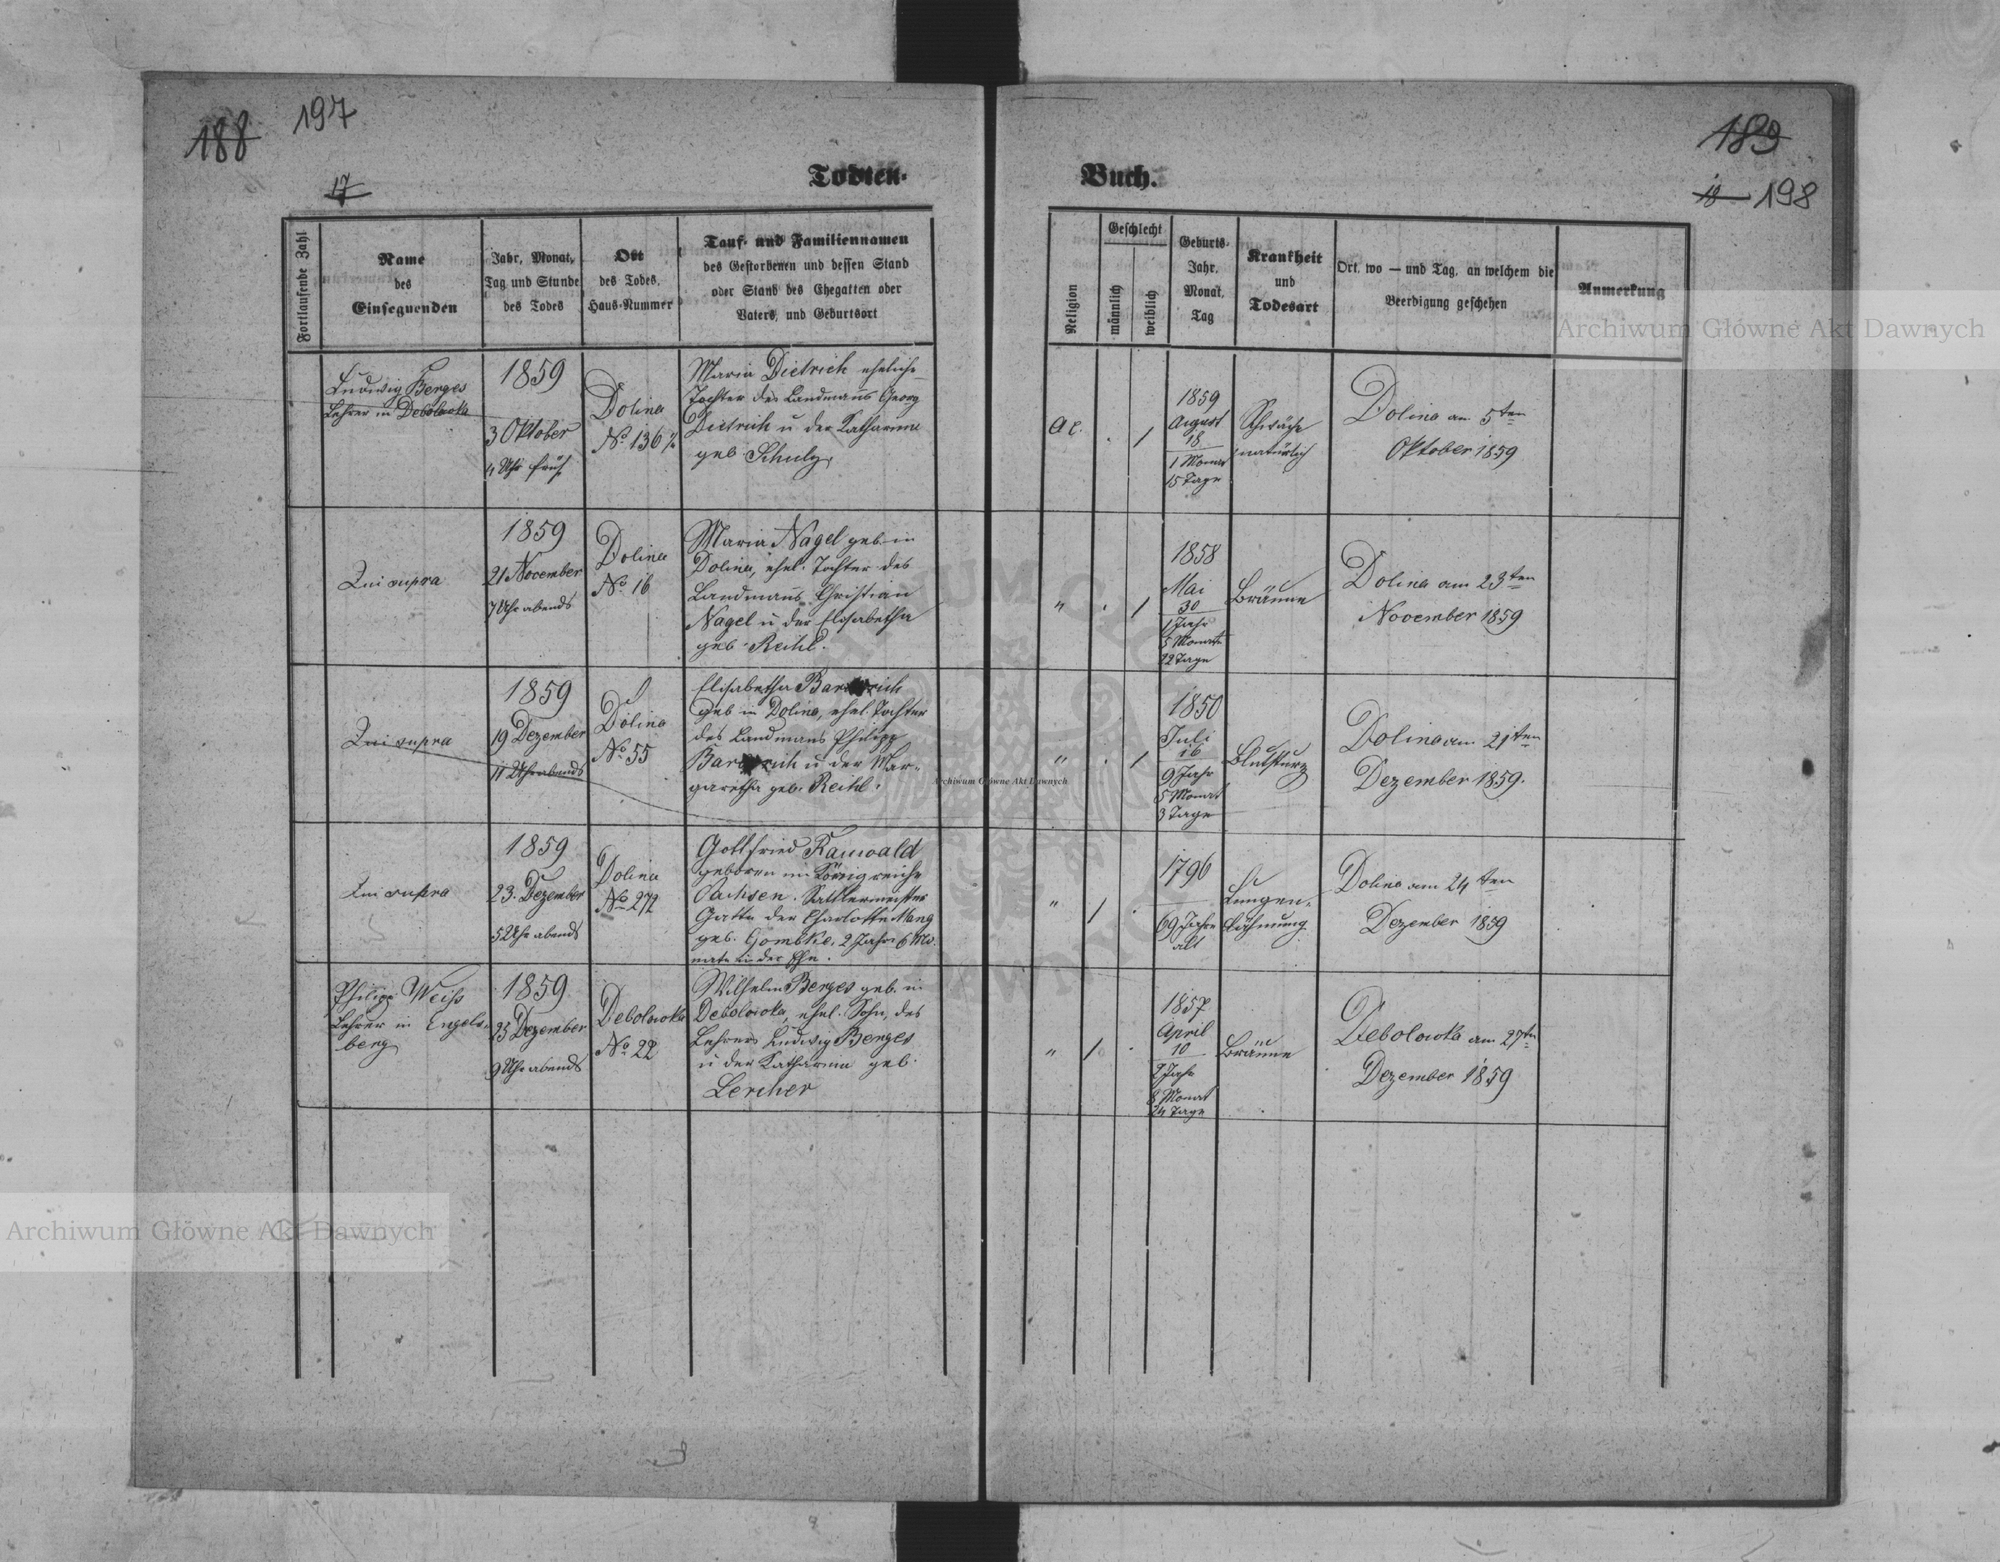 188 197
189
17
18 198
Todten-
Buch.
Fortlaufende Zahl
Name
des
Einsegnenden
Jahr, Monat,
Tag und Stunde
des Todes
Ort
des Todes,
Haus-Nummer
Tauf- und Familiennamen
des Gestorbenen und dessen Stand
oder Stand des Ehegatten oder
Vaters, und Geburtsort
Religion
Geschlecht
männlich
weiblich
Geburts-
Jahr,
Monat,
Tag
Krankheit
und
Todesart
Ort, wo — und Tag, an welchem die
Beerdigung geschehen
Anmerkung
Ludwig Berges
Lehrer in Debolowka
1859
3 Oktober
4 Uhr früh
Dolina
No 136
Maria Dietrich eheliche
Tochter des Landmans Georg
Dietrich u der Katharina
geb. Schulz.
1
1859
August
18
1 Monat
15 Tage
Schwäche
natürlich
Dolina am 5ten
Oktober 1859
Qui supra
1859
21 November
7 Uhr abends
Dolina
No 16
Maria Nagel geb. in
Dolina, ehel. Tochter des
Landmans Christian
Nagel u der Elisabetha
geb. Reihl.
" 1
1858
Mai
30
1 Jahr
5 Monate
22 Tage
Bräune
Dolina am 23ten
November 1859
Qui supra
1859
19 Dezember
11 Uhr abends
Dolina
No 55
Elisabetha
geb in Dolina, ehel. Tochter
des Landmans Philipp
u der Mar-
garetha geb. Reihl.
" 1
1850
Juli
16
9 Jahr
5 Monat
3 Tage
Blutsturz
Dolina am 21ten
Dezember 1859.
Qui supra
1859
23. Dezember
5 Uhr abends
Dolina
No 272
Gottfried Kauwald
geboren im Königreiche
Sachsen. Sattlermeister
Gatte der Charlotte Mang
geb. Gombke. 2 Jahr 6 Mo-
nate in der Ehe.
" 1
1796
69 Jahre
alt
Lungen-
lähmung
Dolina am 24ten
Dezember 1859
Philipp Weiss
Lehrer in Engels-
berg
1859
25 Dezember
9 Uhr abends
Debolowka
No 22
Wilhelm Berges geb. in
Debolowka, ehel. Sohn, des
Lehrers Ludwig Berges
u der Katharina geb.
Lercher
" 1
1857
April
10
2 Jahr
8 Monat
24 Tage
Bräune
Debolowka am 27ten
Dezember 1859
Archiwum Główne Akt Dawnych
Archiwum Główne Akt Dawnych
Archiwum Główne Akt Dawnych